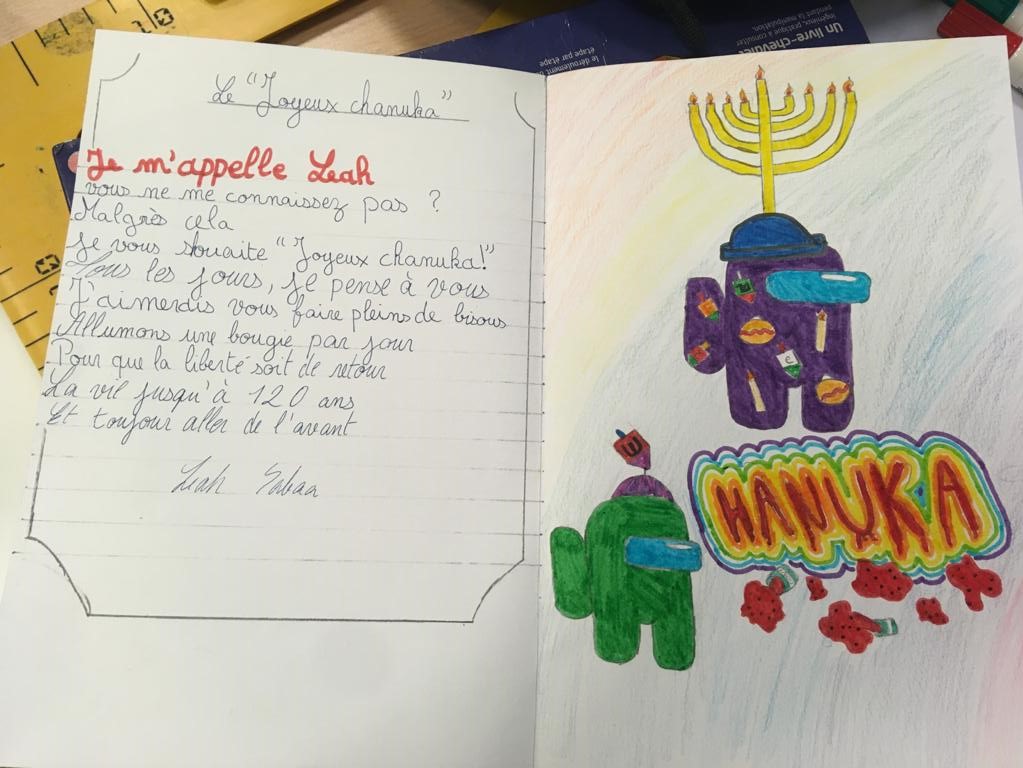 Un livre-chevalet
ingénieux, pratique à consulter
pendant la manipulation.
le déroulement
étape par étape
Le "Joyeux chanuka"
Je m'appelle Leah
vous ne me connaissez pas ?
Malgrès cela
Je vous shouaite "Joyeux chanuka!"
Tous les jours, je pense à vous
J'aimerais vous faire pleins de bisous
Allumons une bougie par jour
Pour que la liberté soit de retour
La vie jusqu'à 120 ans
Et toujour aller de l'avant
Leah
HANUKA